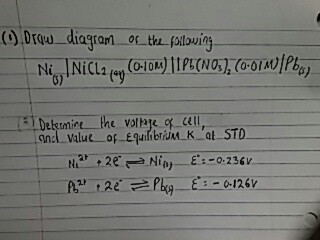 (1) Draw diagram of the following
Ni(s)|NiCl2 (aq) (0.10M)||Pb(NO3)2 (0.01M)|Pb(s)
(2) Determine the voltage of cell,
and value of Equilibrium K at STD
Ni2+ + 2e- ⇌ Ni(s) E°= -0.236V
Pb2+ + 2e- ⇌ Pb(s) E°= -0.126V